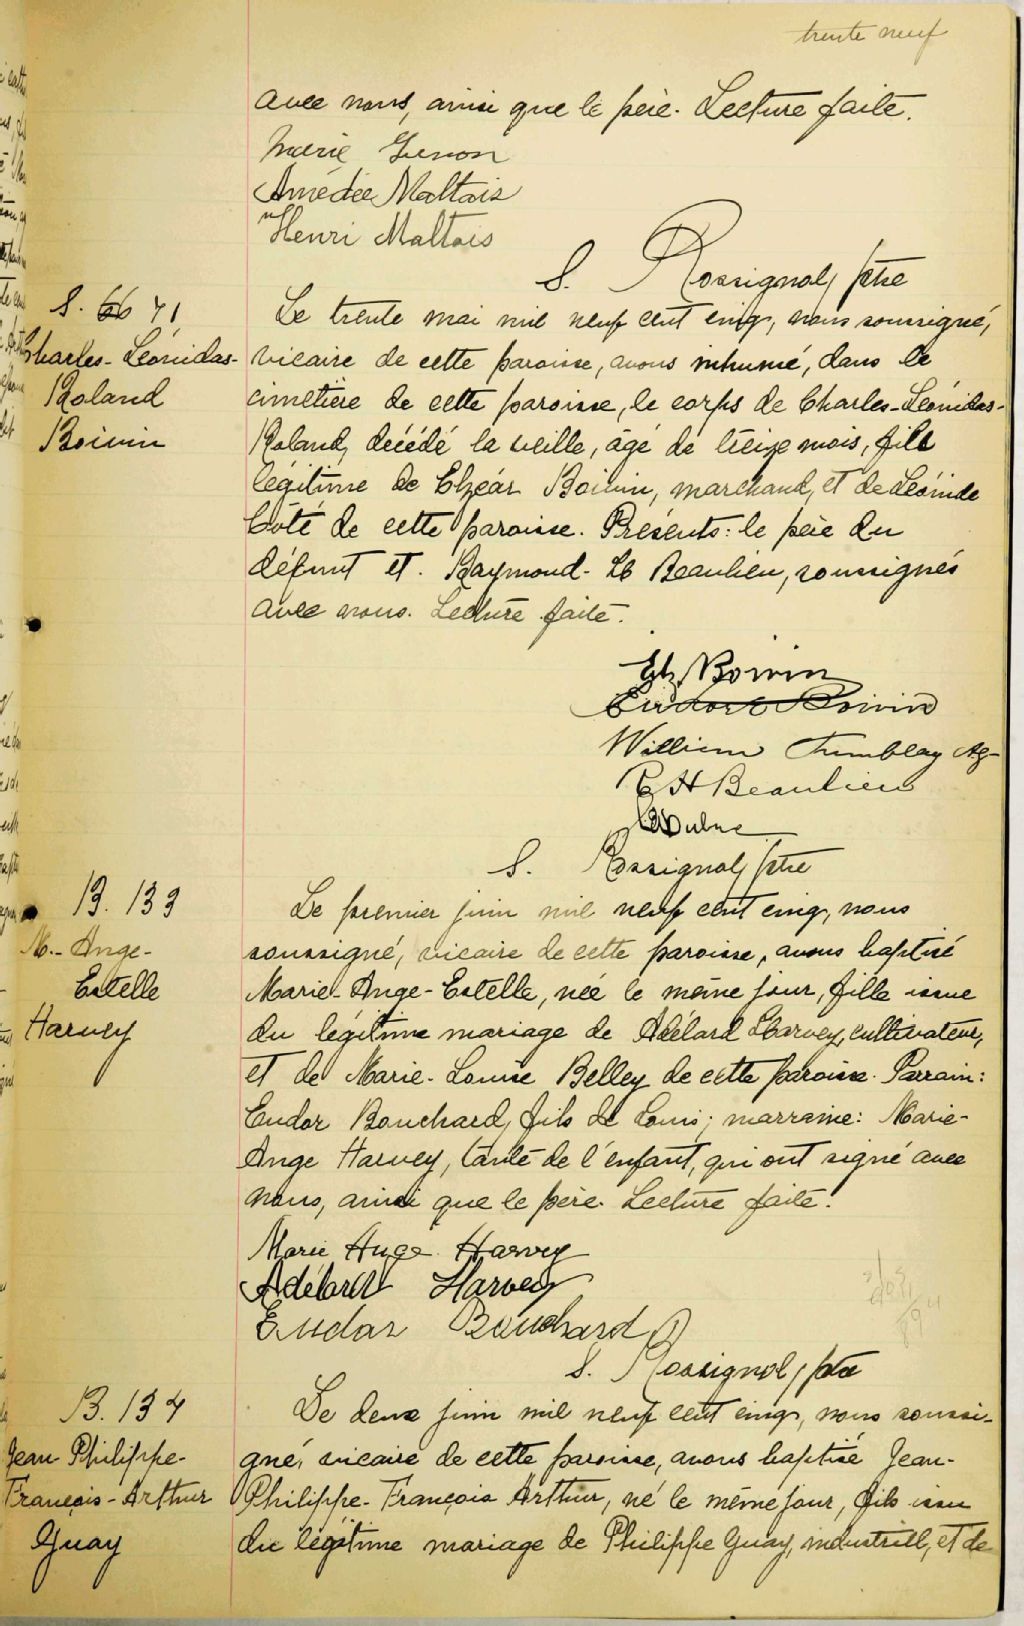 trente neuf
avec nous, ainsi que le père. Lecture faite.
Marie Simon
Amédée Maltais
Henri Maltais
S. Rossignol, ptre
S. 71
Charles-Léonidas-
Roland
Boivin
Le trente mai mil neuf cent cinq, nous soussigné,
vicaire de cette paroisse, avons inhumé, dans le
cimetière de cette paroisse, le corps de Charles-Léonidas-
Roland, décédé la veille, âgé de treize mois, fils
légitime de Elzéar Boivin, marchand, et de Léonide
Côté de cette paroisse. Présents: le père du
défunt et Raymond- Beaulieu, soussignés
avec nous. Lecture faite.
Elz Boivin
Boivin
William Tremblay
H Beaulieu
S. Rossignol, ptre
B. 133
M.-Ange-
Estelle
Harvey
Le premier juin mil neuf cent cinq, nous
soussigné, vicaire de cette paroisse, avons baptisé
Marie-Ange-Estelle, née le même jour, fille issue
du légitime mariage de Adélard Harvey, cultivateur,
et de Marie-Louise Belley de cette paroisse. Parrain:
Eudor Bouchard, fils de Louis; marraine: Marie-
Ange Harvey, tante de l'enfant, qui ont signé avec
nous, ainsi que le père. Lecture faite.
Marie Ange Harvey
Adélard Harvey
Eudor Bouchard
S. Rossignol, ptre
B. 134
Jean Philippe-
François-Arthur
Guay
Le deux juin mil neuf cent cinq, nous soussi-
gné, vicaire de cette paroisse, avons baptisé Jean-
Philippe-François Arthur, né le même jour, fils issu
du légitime mariage de Philippe Guay, industriel, et de